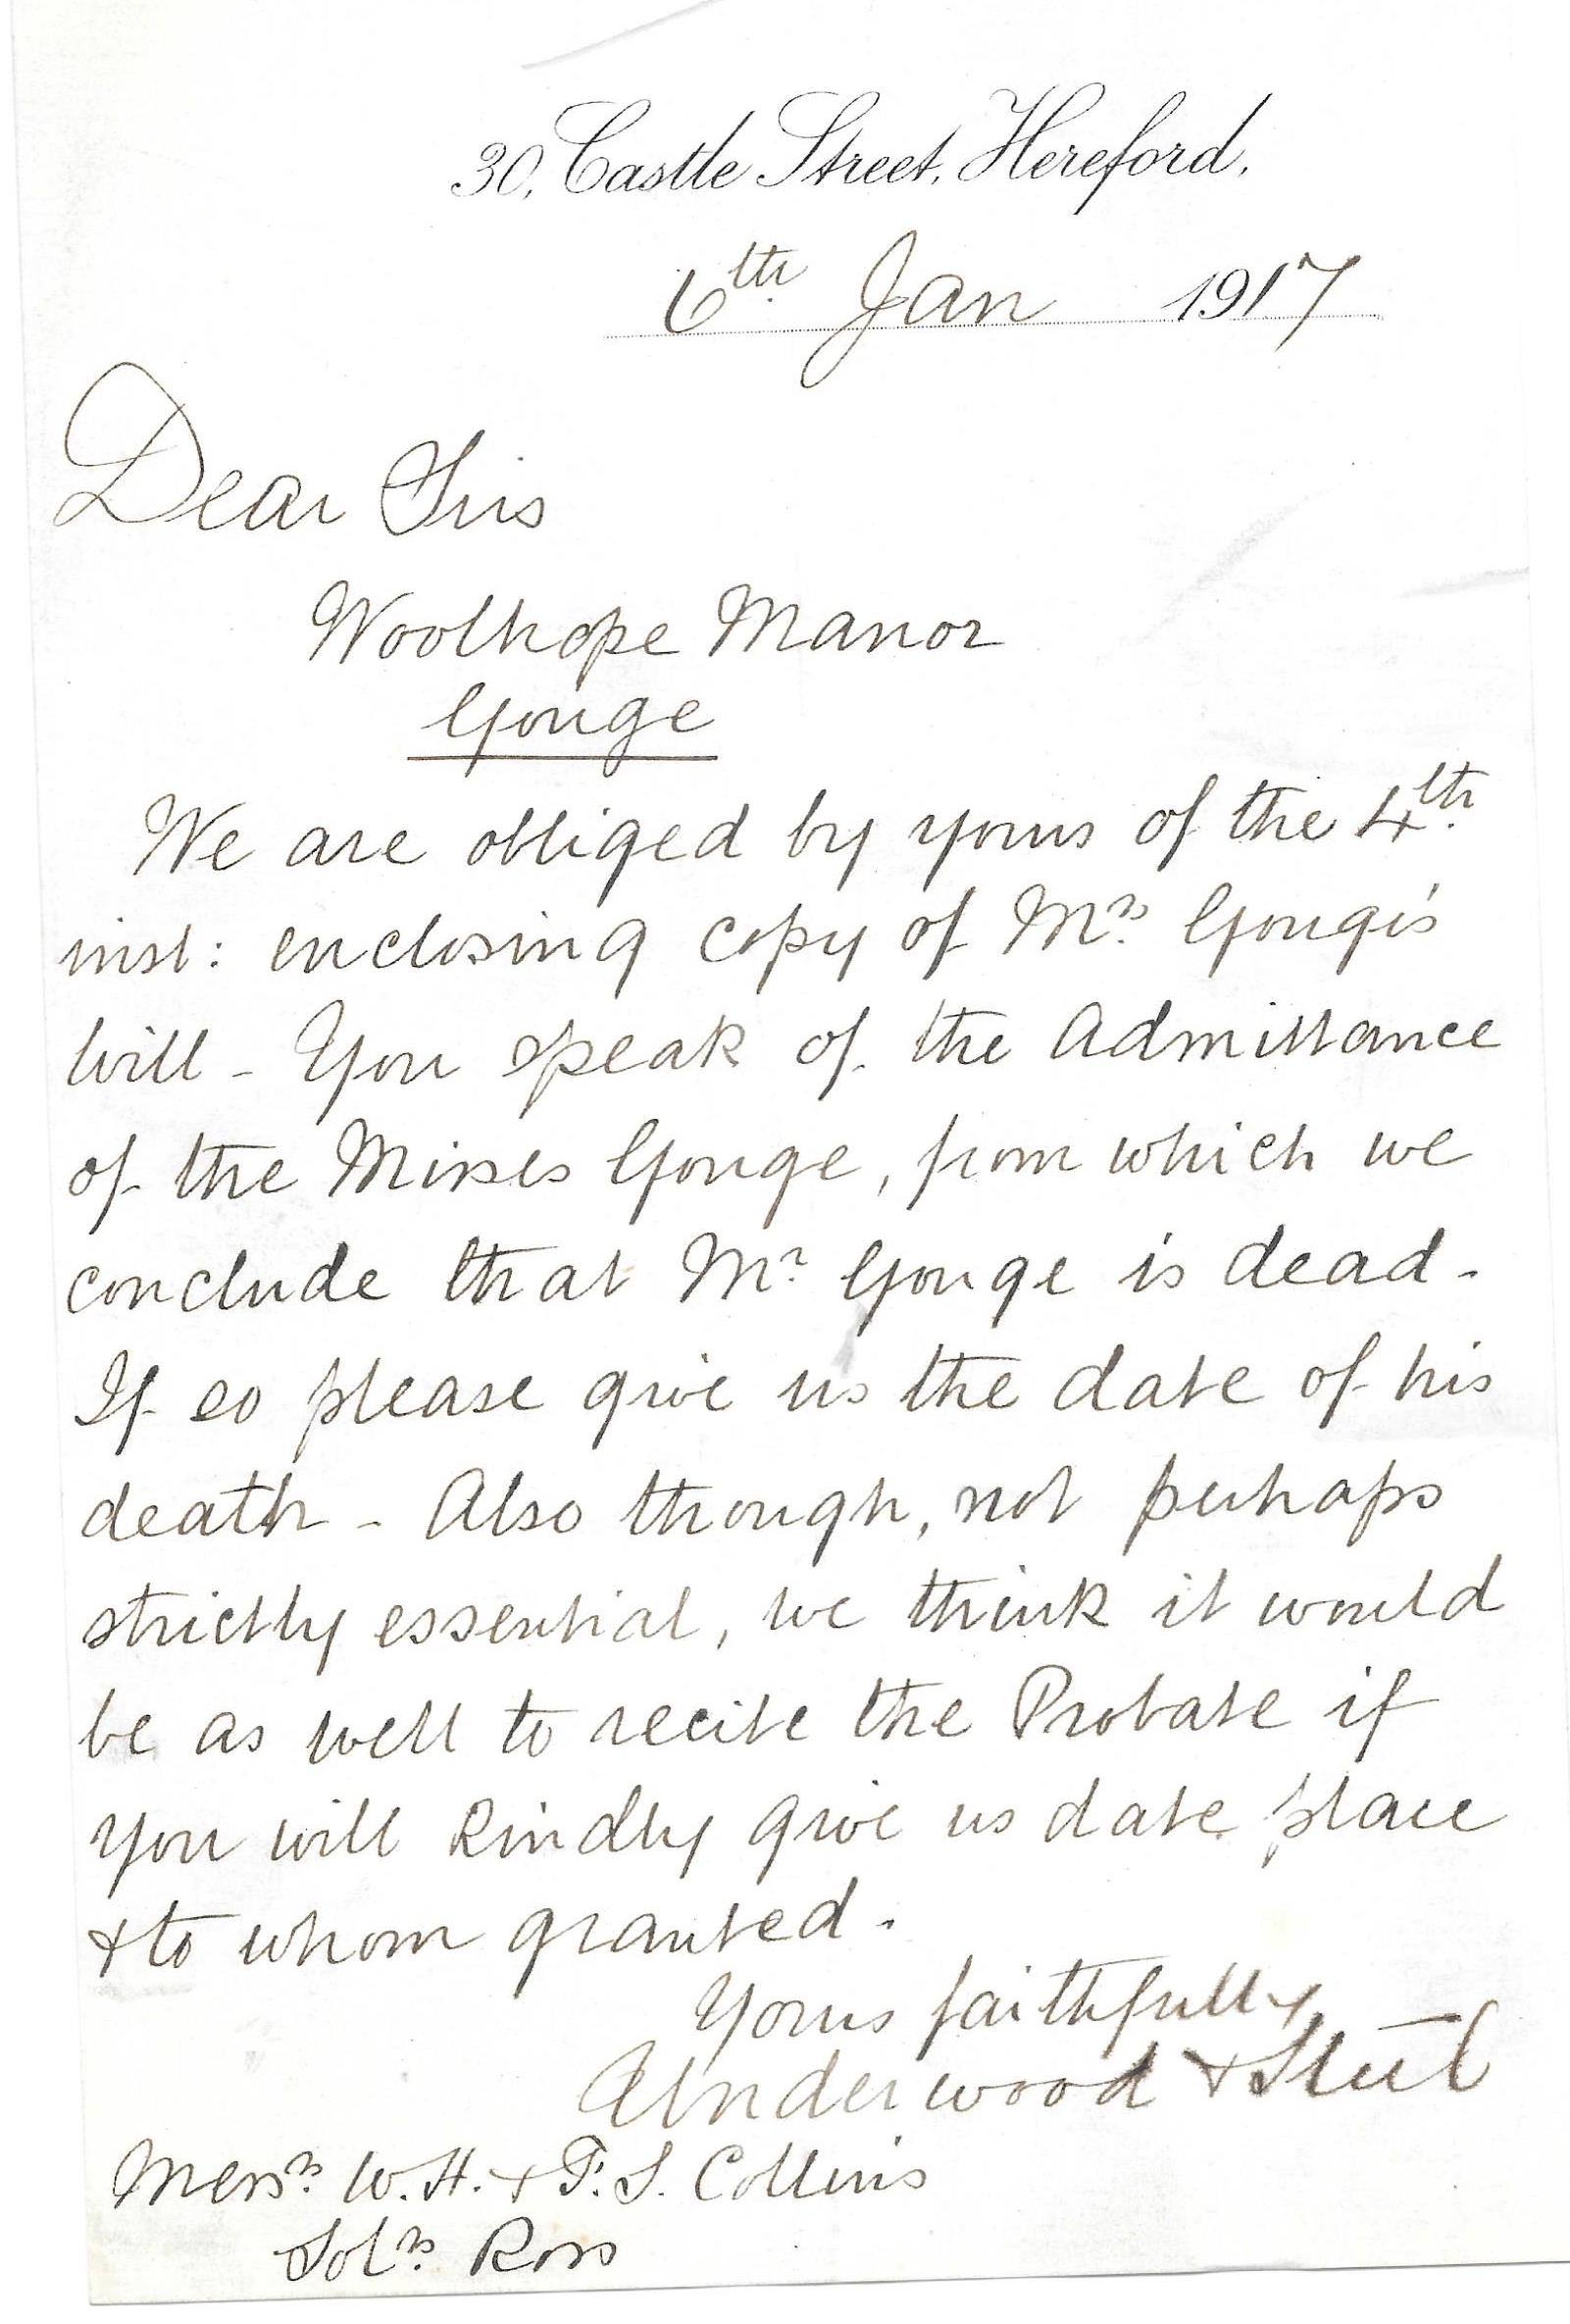 30, Castle Street, Hereford.
6th Jan 1917
Dear Sirs
Woolhope Manor
Gouge
We are obliged by yours of the 4th
inst: enclosing copy of Mrs Gouge's
will - You speak of the Admittance
of the Misses Gouge, from which we
conclude that Mr Gouge is dead.
If so please give us the date of his
death - Also though, not perhaps
strictly essential, we think it would
be as well to recite the Probate if
you will kindly give us date place
+ to whom granted.
Yours faithfully
Underwood + Steel
Messrs W. H. + F. S. Collins
Solrs Ross